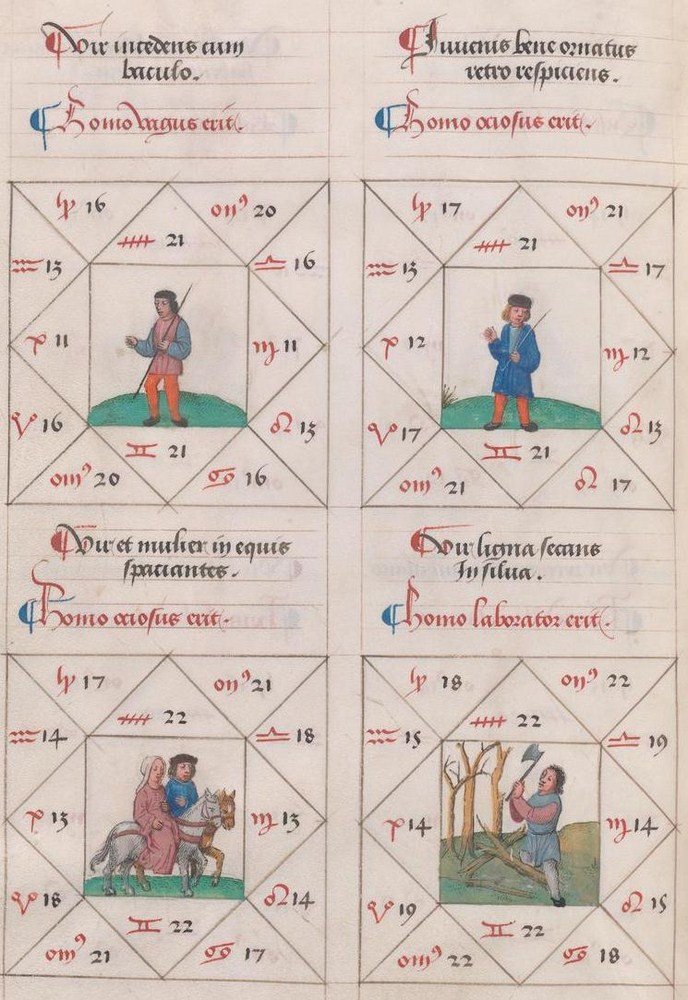 ¶ Vir incedens cum
baculo.
¶ Homo vagus erit.
16 20
21
♒ 13 ♎ 16
11 ♏ 11
♈ 16 ♌ 13
♊ 21
20 ♋ 16
¶ Iuuenis bene ornatus
retro respiciens.
¶ Homo ociosus erit.
17 21
21
♒ 13 ♎ 17
12 ♏ 12
♈ 17 ♌ 13
♊ 21
21 ♌ 17
¶ Vir et mulier in equis
spaciantes.
¶ Homo ociosus erit.
17 21
22
♒ 14 ♎ 18
13 ♏ 13
♈ 18 ♌ 14
♊ 22
21 ♋ 17
¶ Vir ligna secans
In silua.
¶ Homo laborator erit.
18 22
22
♒ 15 ♎ 19
14 ♏ 14
♈ 19 ♌ 15
♊ 22
22 ♋ 18